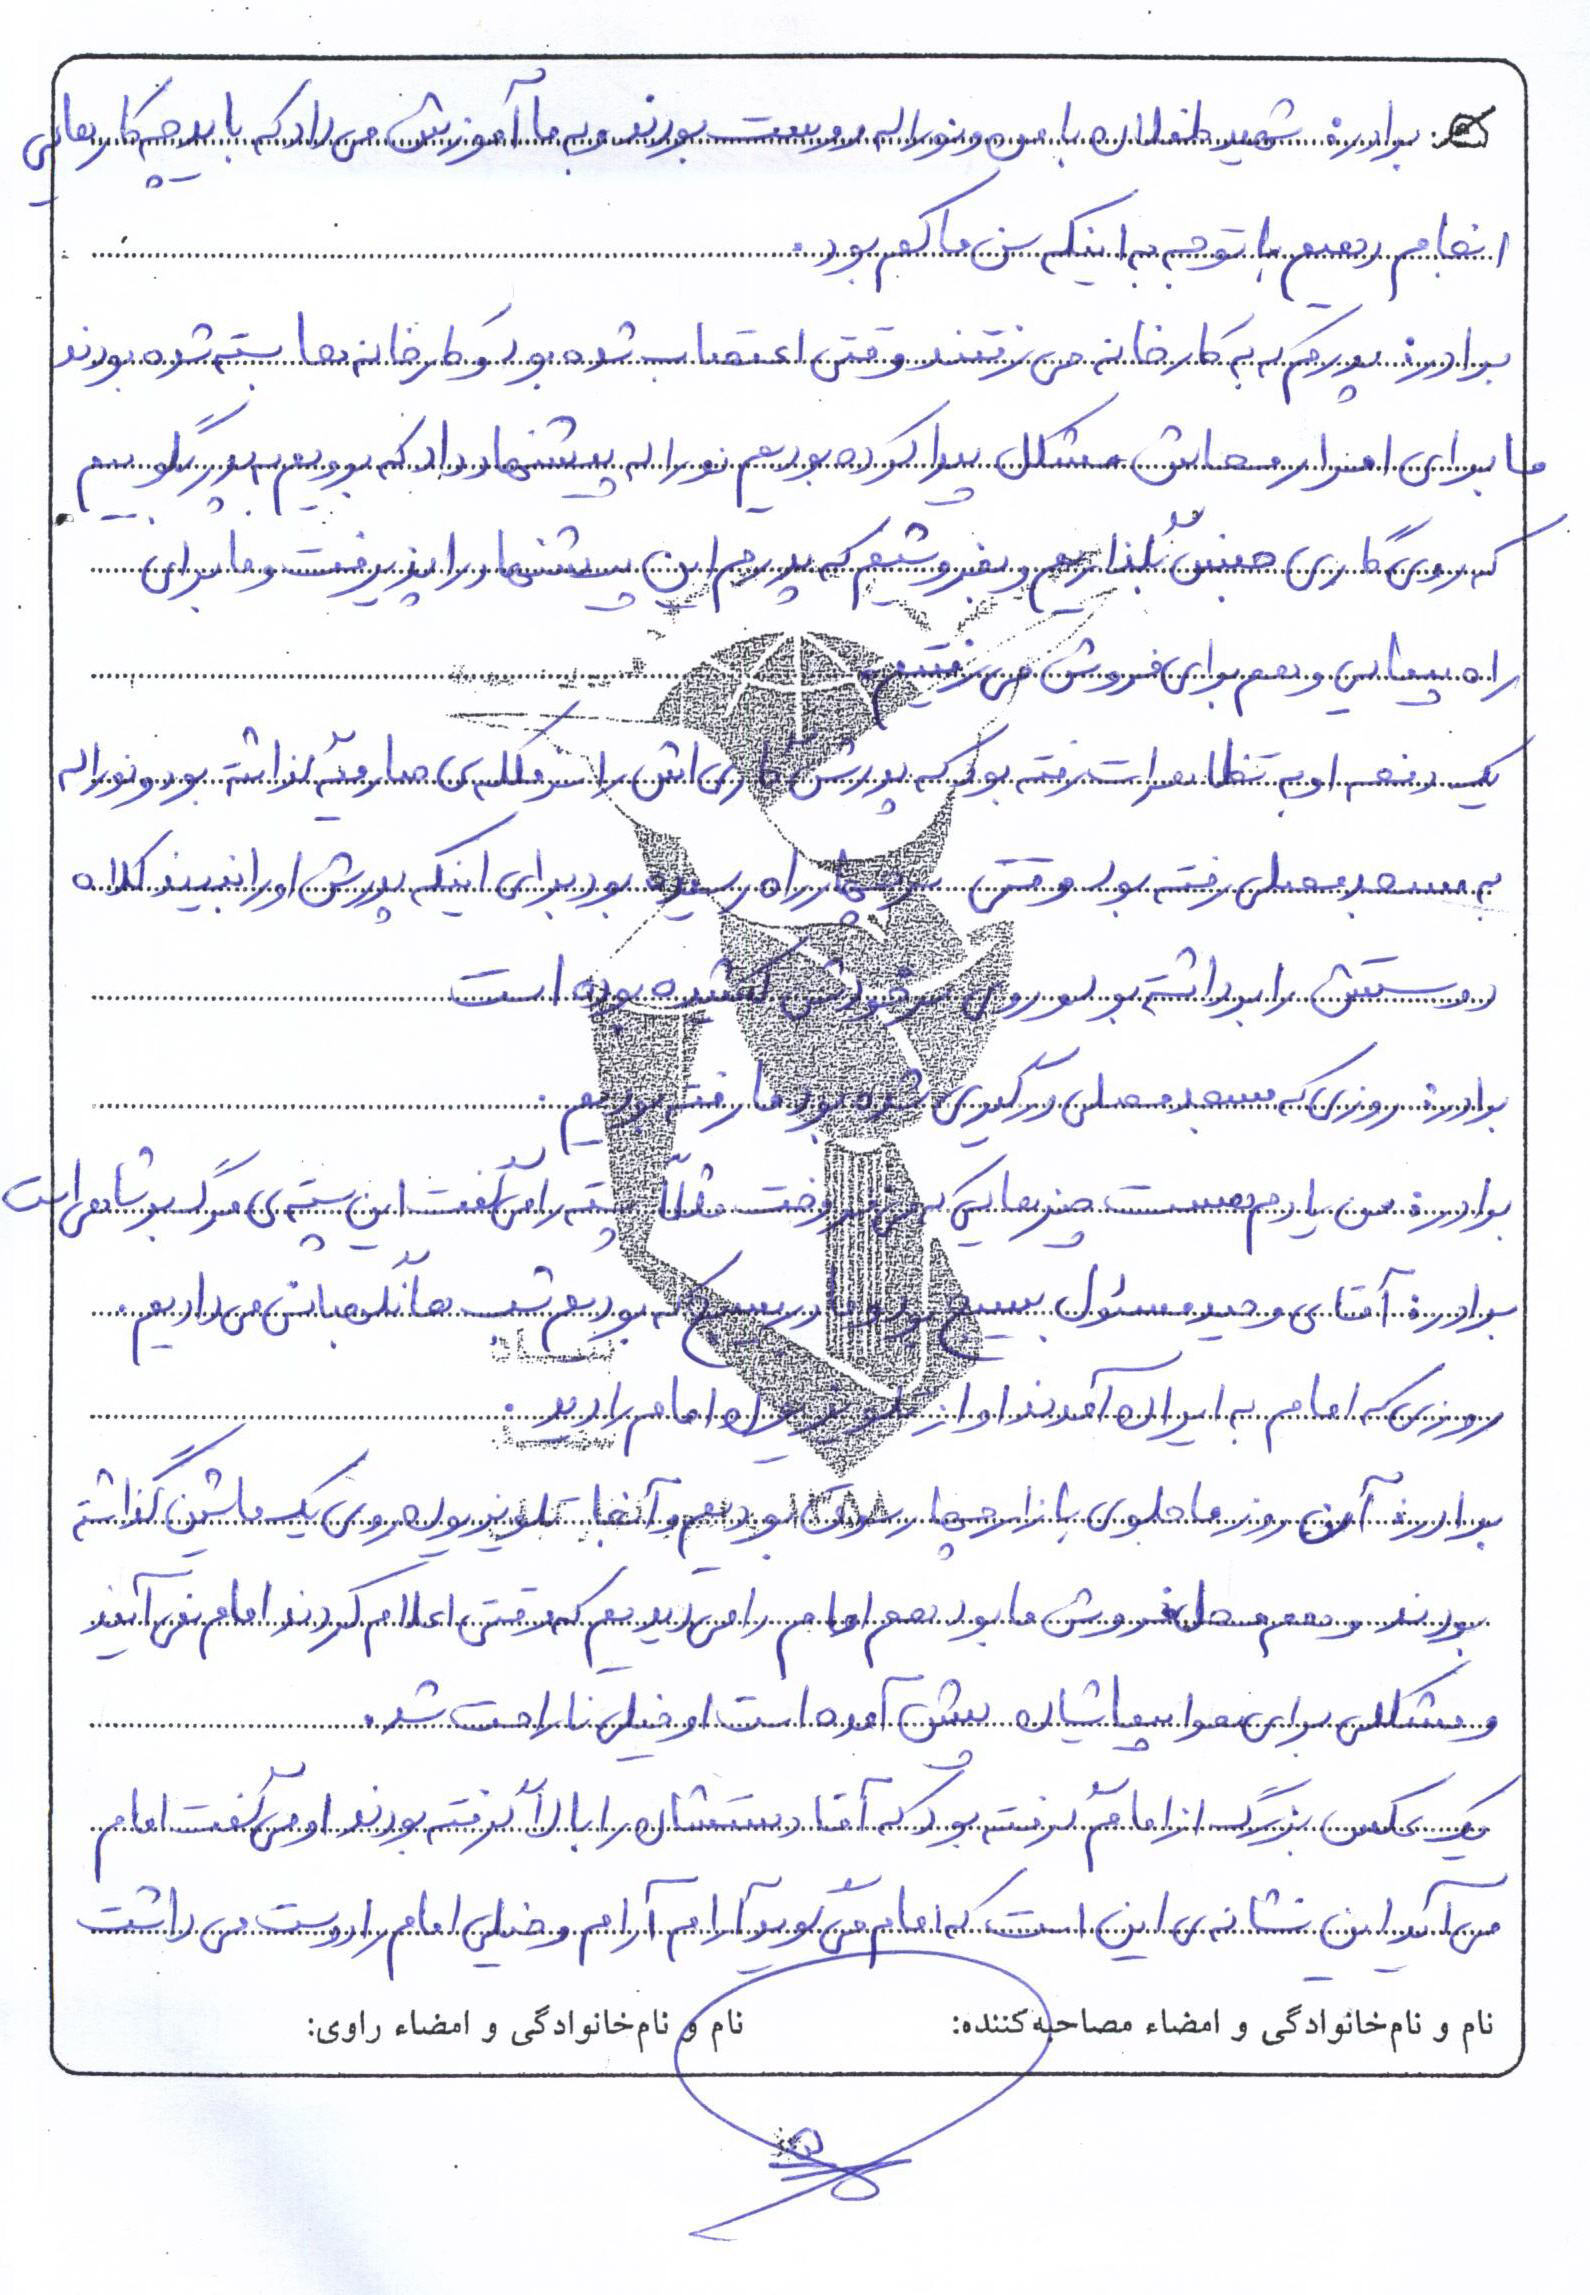 برادر: شهید طفلان با من و نوراله دوست بودند و به ما آموزش می داد که باید چه کارهایی
انجام دهیم با توجه به اینکه سن ما کم بود.
برادر: پدرم که به کارخانه می رفتند وقتی اعتصاب شده بود و کارخانه ها بسته شده بودند
ما برای امرار معاش مشکل پیدا کرده بودیم نوراله پیشنهاد داد که برویم به پدر بگوییم
که روی گاری جنس بگذاریم و بفروشیم که پدرم این پیشنهاد را پذیرفت و ما برای
راه پیمایی و هم برای فروش می رفتیم.
یک دفعه او به تظاهرات رفته بود که پدرش گاری اش را سر فلکه ی صارمیه گذاشته بود و نوراله
به مسجد مصلی رفته بود وقتی سر چهار راه رسیده بود برای اینکه پدرش او را نبیند کلاه
دوستش را برداشته بود و روی سر خودش کشیده بوده است
برادر: روزی که مسجد مصلی درگیری شده بود ما رفته بودیم.
برادر: من یادم هست چیزهایی که می فروخت مثلاً پسته را می گفت این پسته ی مرگ بر شاهی است
برادر: آقای وحید مسئول بسیج بود و ما در بسیج که بودیم شب ها نگهبانی می دادیم.
روزی که امام به ایران آمدند او از تلویزیون امام را دید.
برادر: آن روز ما جلوی بازارچه چهارسوق بودیم و آنجا تلویزیون روی یک ماشین گذاشته
بودند و هم محل فروش ما بود هم امام را می دیدیم که وقتی اعلام کردند امام نمی آیند
و مشکلی برای هواپیماشان پیش آمده است او خیلی ناراحت شد.
یک عکس بزرگ از امام گرفته بود که آقا دستشان را بالا گرفته بودند او می گفت امام
می آید این نشانه ی این است که امام می گوید آرام آرام و خیلی امام را دوست می داشت
نام و نام‌خانوادگی و امضاء مصاحبه‌کننده: نام و نام‌خانوادگی و امضاء راوی: